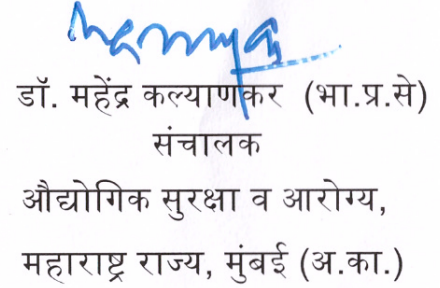 डॉ. महेंद्र कल्याणकर (भा.प्र.से)
संचालक
औद्योगिक सुरक्षा व आरोग्य,
महाराष्ट्र राज्य, मुंबई (अ.का.)